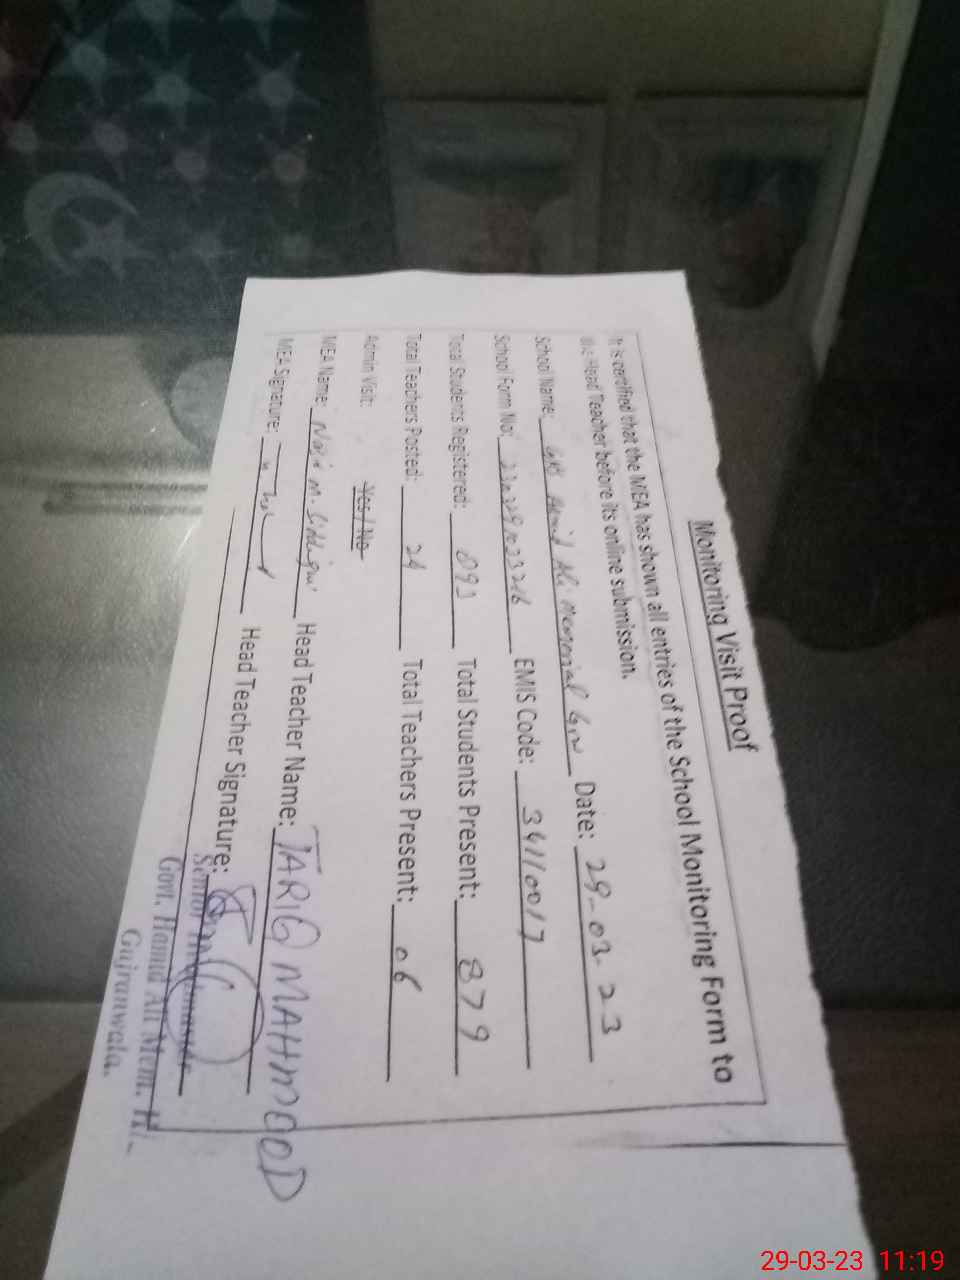 Monitoring Visit Proof
It is certified that the MEA has shown all entries of the School Monitoring Form to
the Head Teacher before its online submission.
School Name: Memorial Date: 29-03-23
School Form No: EMIS Code: 34110017
Total Students Registered: Total Students Present: 879
Total Teachers Posted: 24 Total Teachers Present: 06
Admin Visit: Yes / No
MEA Name: Head Teacher Name: TARIQ MAHMOOD
MEA Signature: Head Teacher Signature:
Senior
Govt. Hamid Ali Mem.
Gujranwala.
29-03-23 11:19